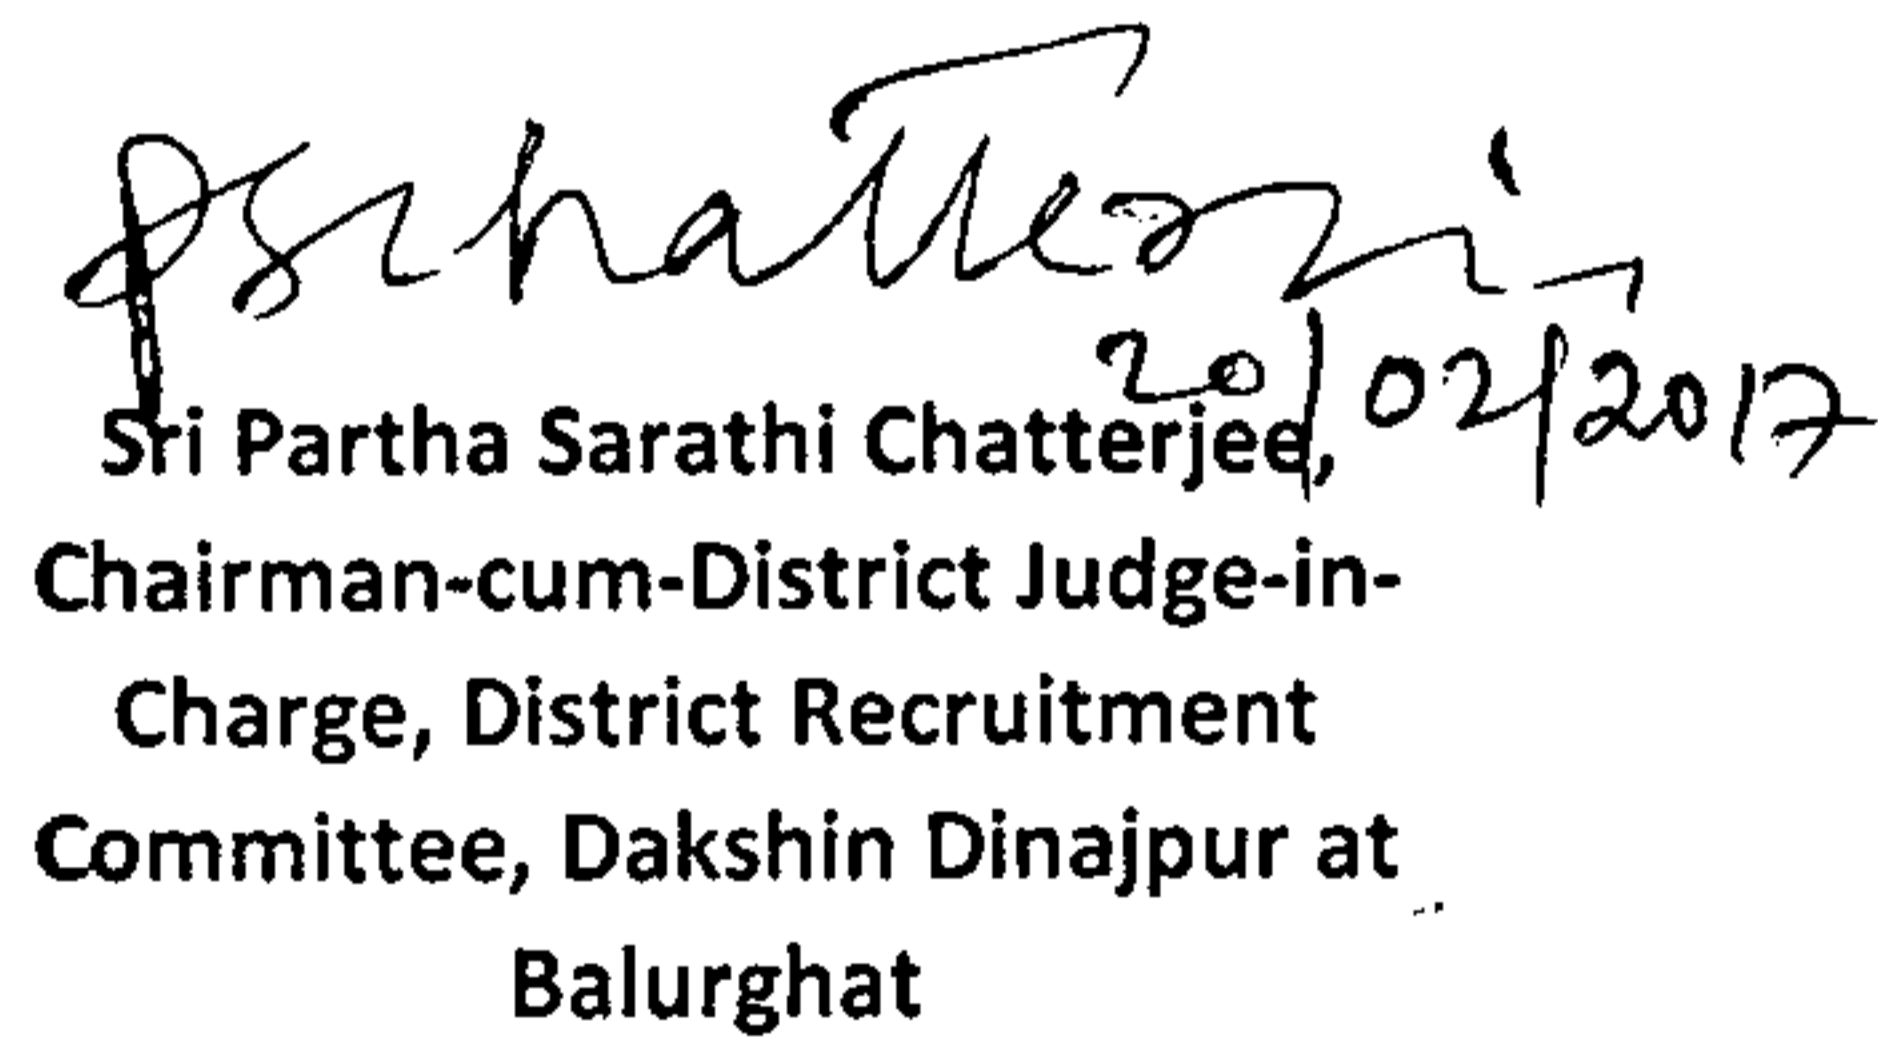 PSChatterji
20/02/2017
Sri Partha Sarathi Chatterjee,
Chairman-cum-District Judge-in-
Charge, District Recruitment
Committee, Dakshin Dinajpur at
Balurghat